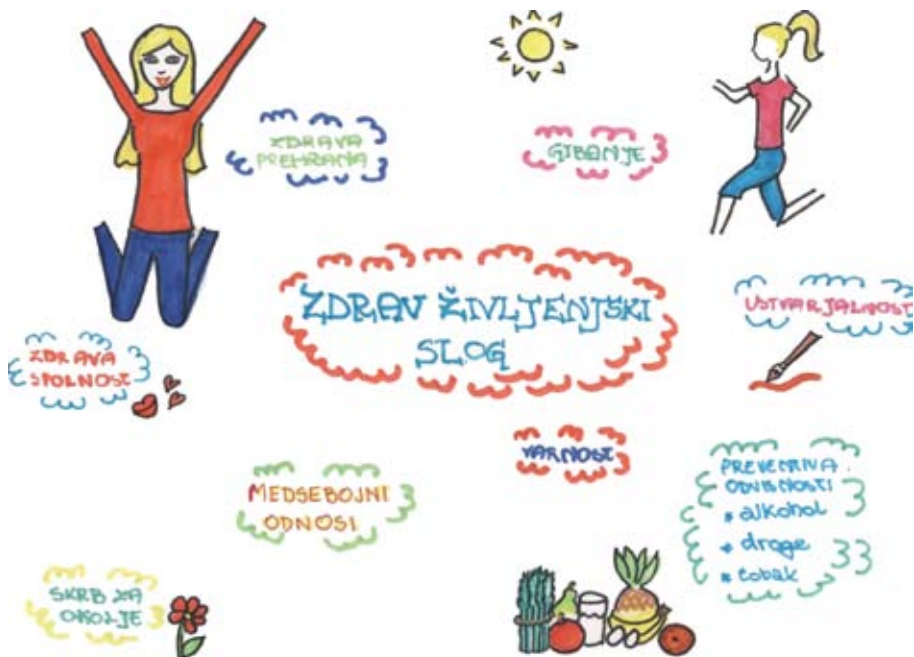 ZDRAVA
PREHRANA
GIBANJE
ZDRAV ŽIVLJENJSKI
SLOG
USTVARJALNOST
ZDRAVA
SPOLNOST
VARNOST
MEDSEBOJNI
ODNOSI
PREVENTIVA
ODVISNOSTI
* alkohol
* droge
* tobak
SKRB ZA
OKOLJE